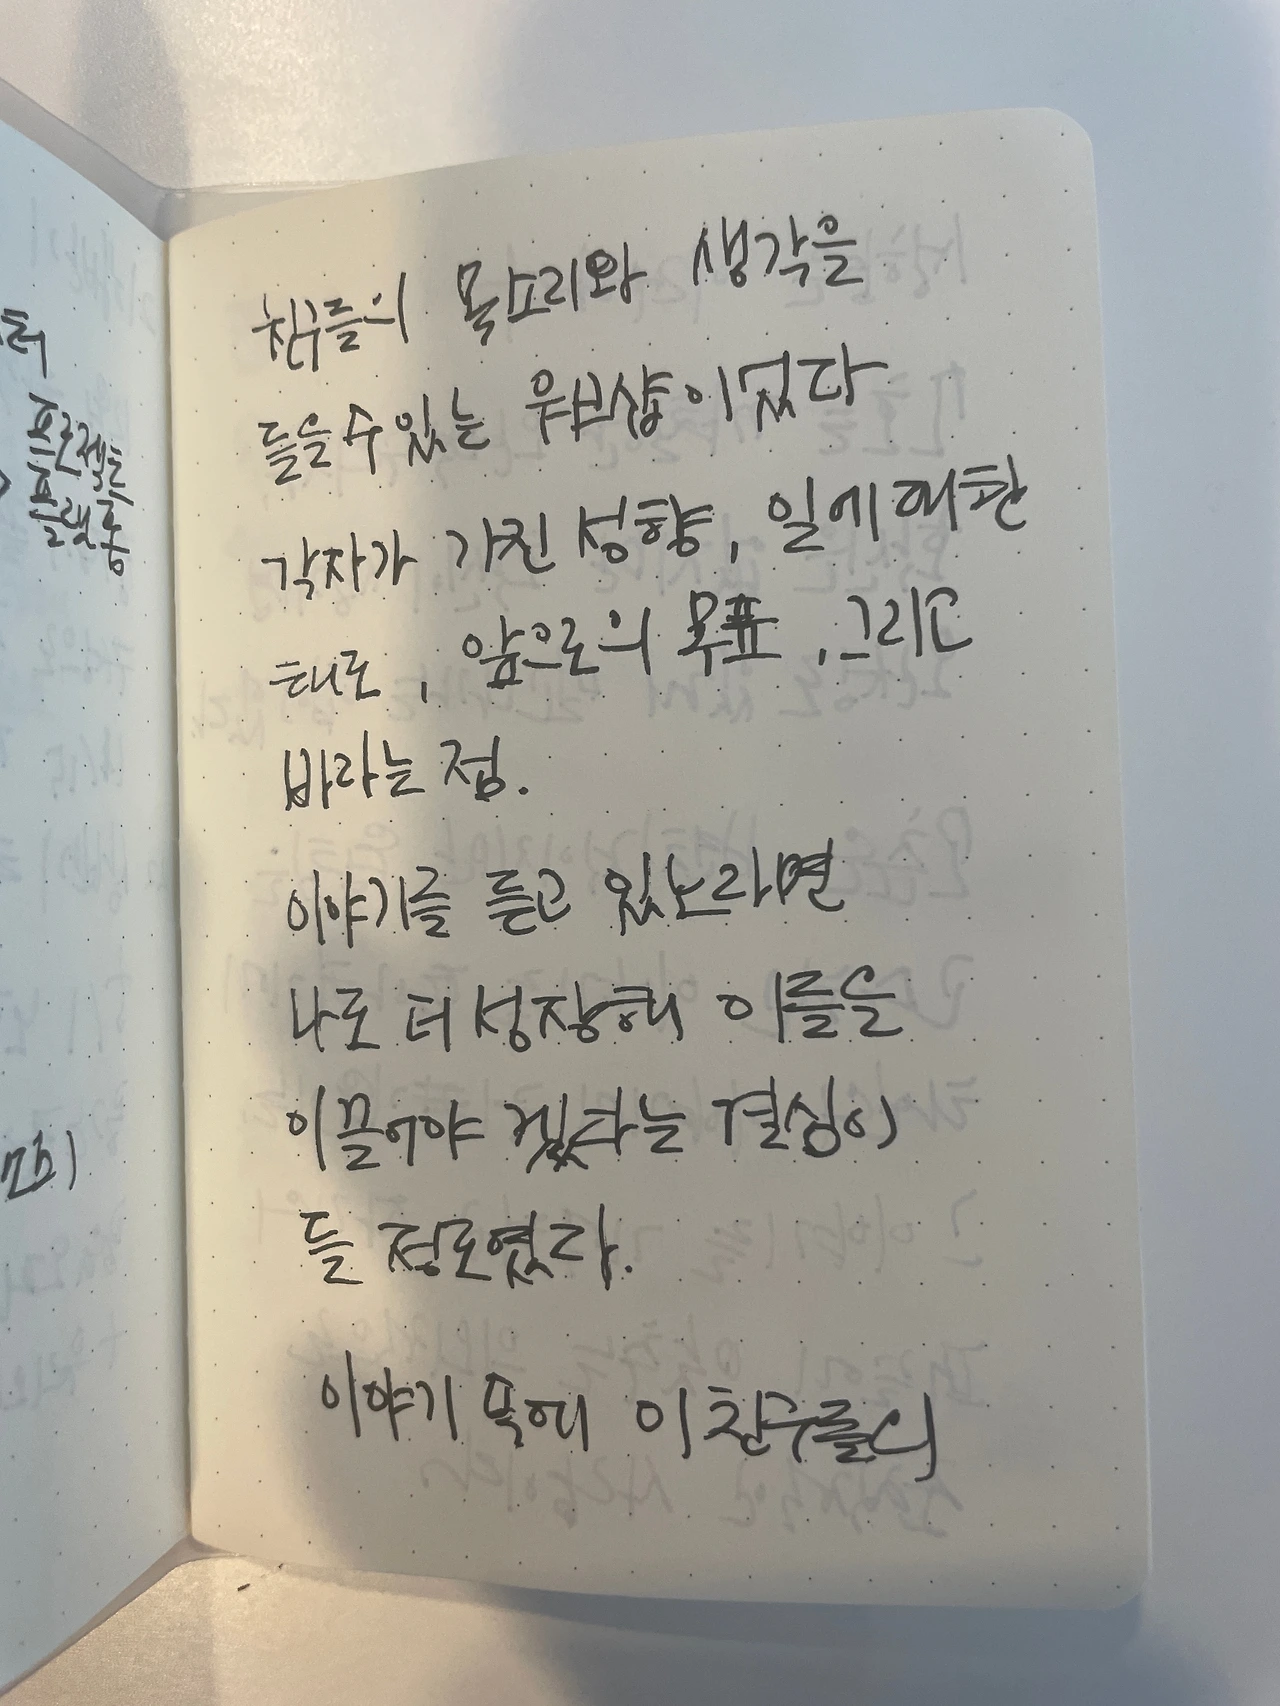 프로젝트
플랫폼
친구들의 목소리와 생각을
들을 수 있는 워브샵이었다
각자가 가진 성향, 일에 대한
태도, 앞으로의 목표, 그리고
바라는 점.
이야기를 듣고 있노라면
나도 더 성장해 이들을
이끌어야 겠다는 결심이
들 정도였다.
이야기 뒤에 이 친구들의